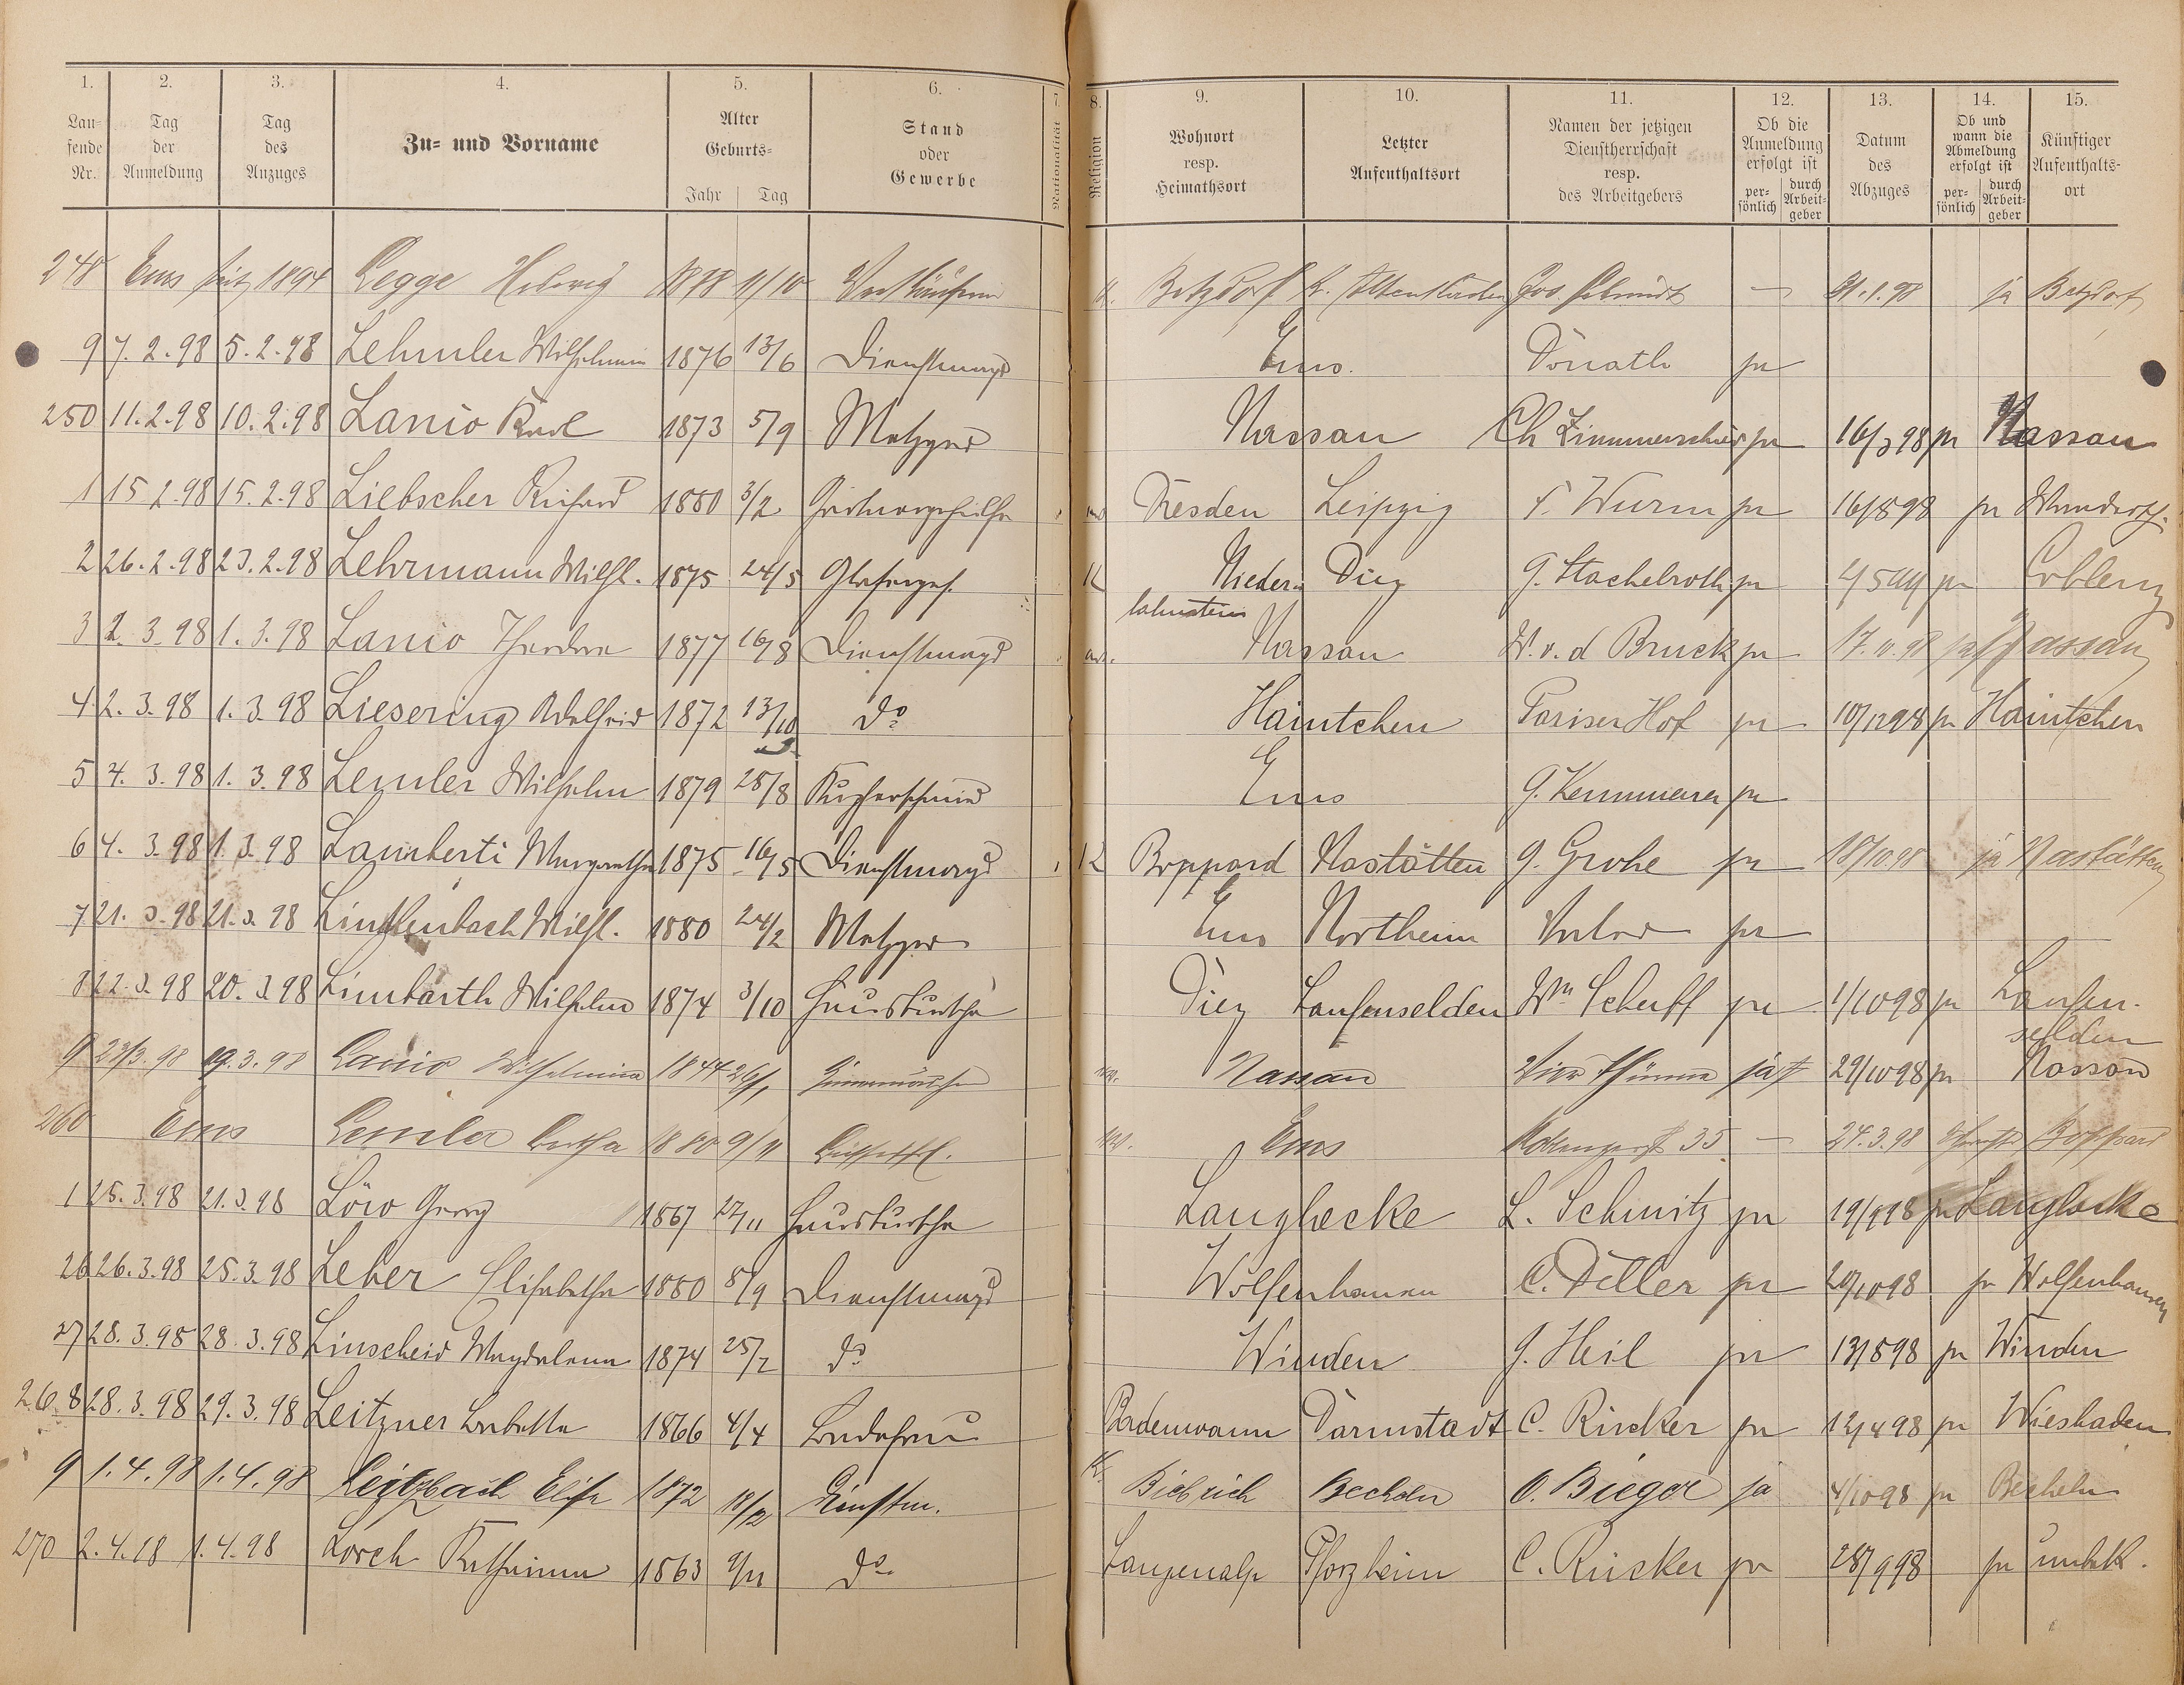 1. 2. 3. 4. 5. 6. 7. 8. 9. 10. 11. 12. 13. 14. 15.
Lau-fende Nr. Tag der Anmeldung Tag des Anzuges Zu- und Vorname Alter Geburts- Jahr Tag Stand oder Gewerbe Nationalität Religion Wohnort resp. Heimathsort Letzter Aufenthaltsort Namen der jetzigen Dienstherrschaft resp. des Arbeitgebers Ob die Anmeldung erfolgt ist per-sönlich durch Arbeit-geber Datum des Abzuges Ob und wann die Abmeldung erfolgt ist per-sönlich durch Arbeit-geber Künftiger Aufenthalts-ort
248 Ems seit 1894 Legge Hedwig 1878 11/10 Verkäuferin K. Betzdorf K. Altenkirchen Jos. Schmidt — 31.1.98 ja Betzdorf
9 7.2.98 5.2.98 Lehmler Wilhelmin 1876 13/6 Dienstmagd Ems. Donath ja
250 11.2.98 10.2.98 Lanio Karl 1873 5/9 Metzger Nassau Ch Zimmerschied ja 16/3 98 ja Nassau
1 15 2.98 15.2.98 Liebscher Richard 1880 3/2 Gärtnergehilfe Dresden Leipzig F. Wurm ja 16/8 98 ja Wandersch.
2 26.2.98 23.2.98 Lehrmann Wilh. 1875 24/5 Glaserges. K Nieder- Diez G. Stachelroth ja ja Coblenz
lahnstein
3 2.3.98 1.3.98 Lanio Theodora 1877 16/8 Dienstmagd ev. Nassau W. v. d Bruck ja 17.11.98 ja Nassau
4 2.3.98 1.3.98 Liesering Adelheid 1872 13/10 do Haintchen Pariser Hof ja 10/12 98 ja Haintchen
5 4.3.98 1.3.98 Lemler Wilhelm 1879 28/8 Kupferschmied Ems G. Kemmerer ja
6 4.3.98 1.3.98 Lamberti Margaretha 1875 16/5 Dienstmagd K Boppard Nastätten G. Grohe ja 18/10 98 ja Nastätten
7 21.3.98 21.3.98 Wilh. 1880 24/2 Metzger Ems Northeim ja
8 22.3.98 20.3.98 Limbarth Wilhelm 1874 3/10 Hausbursche Diez Laufenselden Wm Scheff ja 1/10 98 ja Laufen-
selden
9 23/3.98 19.3.98 Lanio Wilhelmine 1844 26/1 Zimmermädchen ev. Nassau Vier Thürme ja 29/10 98 ja Nassau
260 Ems Lemler Bertha 1880 9/11 ev. Ems 35 — 24.3.98 Boppard
1 25.3.98 21.3.98 Löw Georg 1867 27/11 Hausbursche Langhecke L. Schmitz ja 19/9 98 ja Langhecke
26 26.3.98 25.3.98 Leher Elisabetha 1880 8/9 Dienstmagd Wolfenhausen C. Deller ja 20/10 98 ja Wolfenhausen
27 28.3.98 28.3.98 Linscheid Magdalena 1874 25/7 do Winden J. Heil ja 13/8 98 ja Winden
26.8 28.3.98 29.3.98 Leitzner Babette 1866 4/4 Badefrau Darmstadt C. Rücker ja 12/4 98 ja Wiesbaden
9 1.4.98 1.4.98 Leitzbach Elise 1872 18/2 Dienstm. K. Biebrich Becheln O. Bieger ja 4/10 98 ja Becheln
270 2.4.98 1.4.98 Lorch Katharina 1863 9/11 do Langenalp Pforzheim C. Rücker ja 28/9 98 ja unbek.